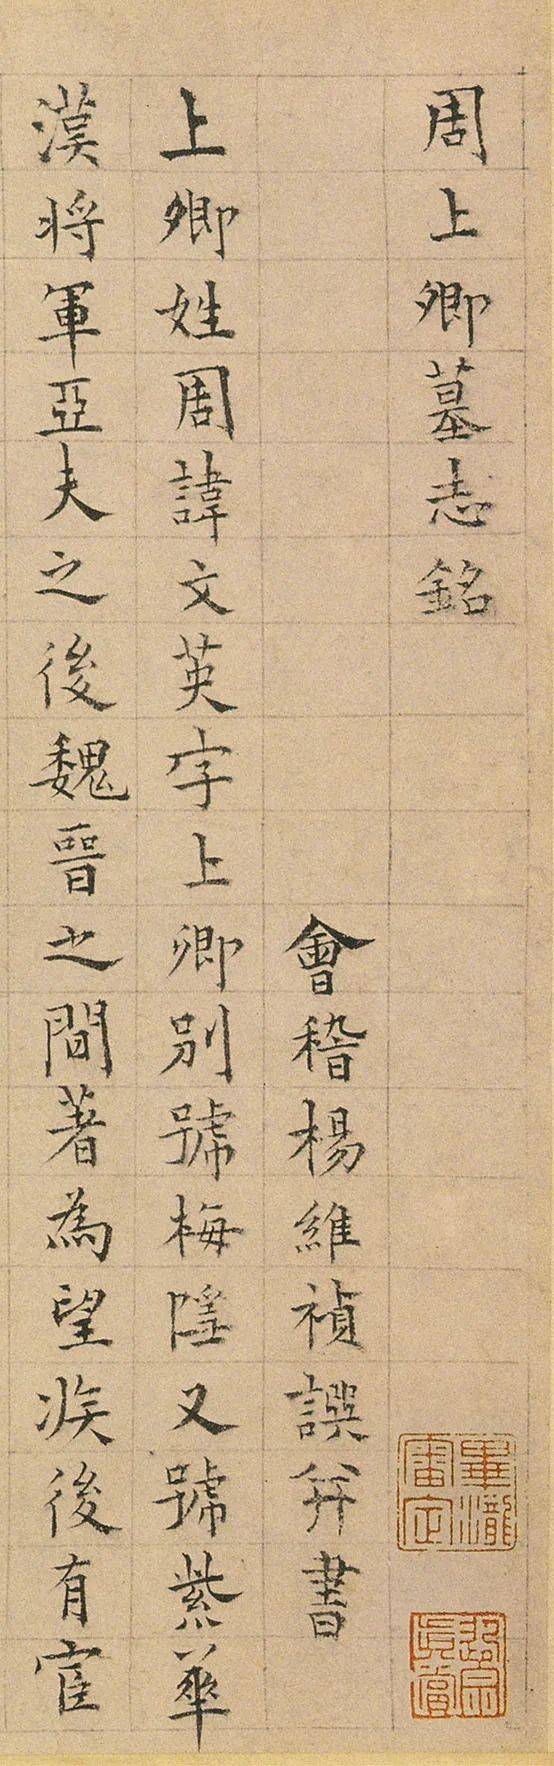 周上卿墓志銘
會稽楊維禎譔并書
上卿姓周諱文英字上卿别號梅隱又號紫華
漢將軍亞夫之後魏晉之間著為望族後有宦
畢瀧審定